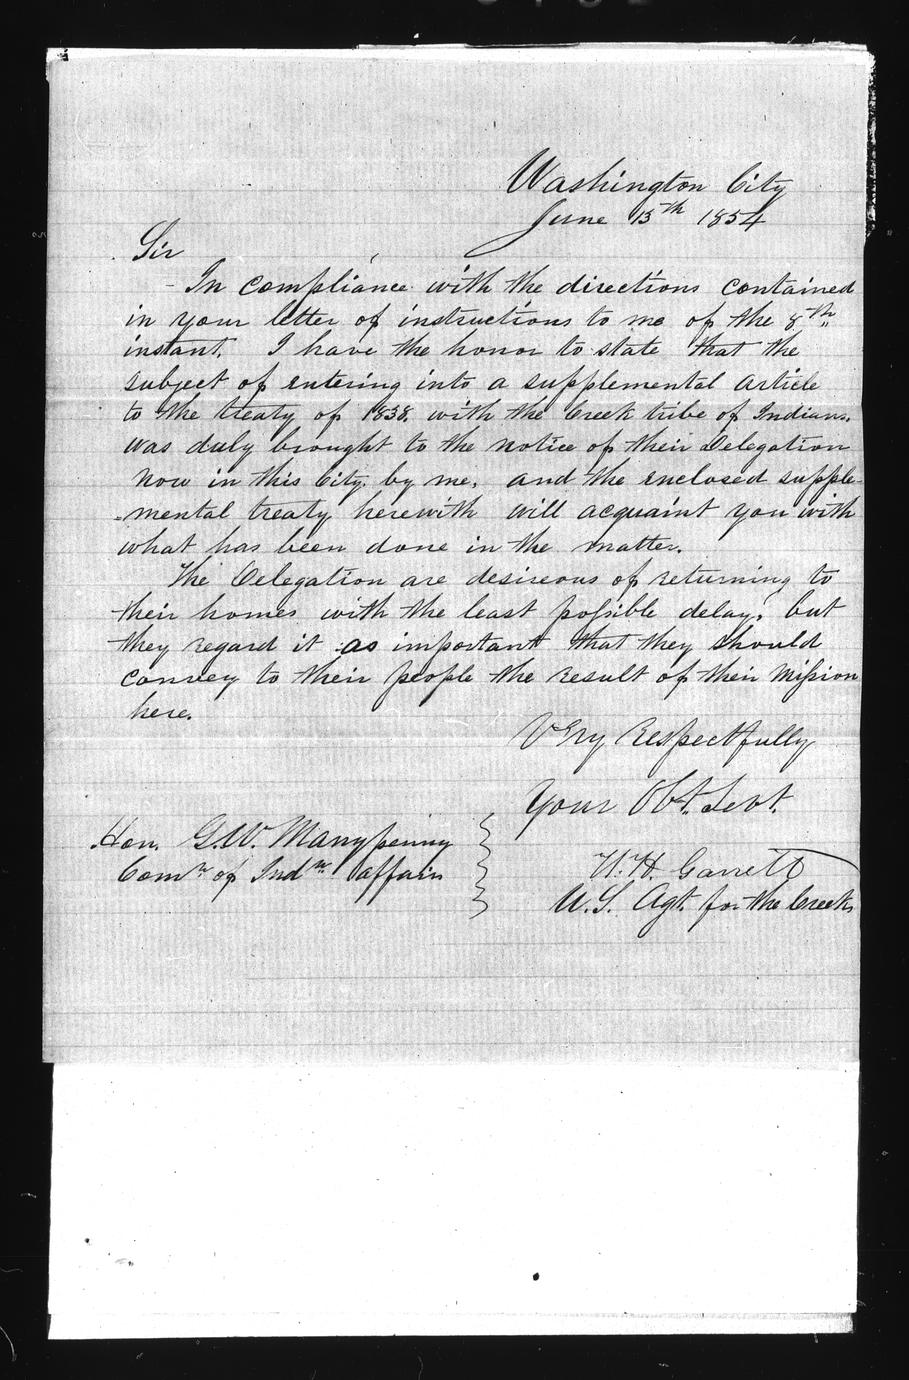 Washington City
June 13th 1854
Sir
- In compliance with the directions contained
in your letter of instructions to me of the 8th
instant, I have the honor to state that the
subject of entering into a supplemental article
to the treaty of 1838, with the Creek tribe of Indians,
was duly brought to the notice of their Delegation
now in this City, by me, and the enclosed supple-
-mental treaty herewith will acquaint you with
what has been done in the matter.
The Delegation are desireous of returning to
their homes with the least possible delay, but
they regard it as important that they should
convey to their people the result of their Mission
here.
Very Respectfully
Your Obt. Servt.
Hon. G.W. Manypenny
Comr of Indn affairs
W.H. Garrett
U.S. Agt. for the Creeks